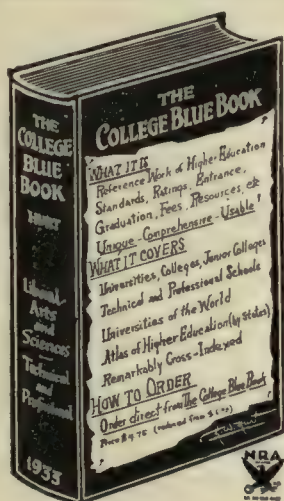 THE
COLLEGE
BLUE
BOOK
HURT
Liberal
Arts
and
Sciences
Technical
and
Professional
1933
THE
COLLEGE BLUE BOOK
WHAT IT IS
Reference Work of Higher Education
Standards, Ratings, Entrance,
Graduation, Fees, Resources, etc
Unique - Comprehensive - Usable
WHAT IT COVERS
Universities, Colleges, Junior Colleges
Technical and Professional Schools
Universities of the World
Atlas of Higher Education (by States)
Remarkably Cross-Indexed
HOW TO ORDER
Order direct from The College Blue Book
Price $4.75 (reduced from
NRA